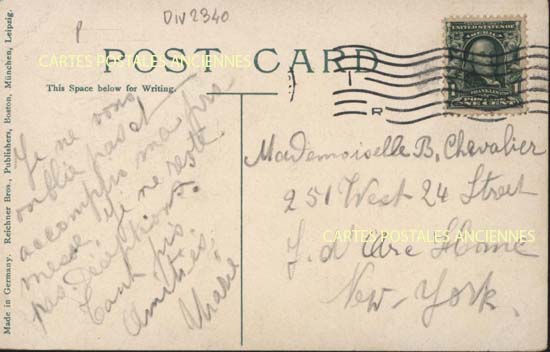 DIV2340
P
POST CARD
This Space below for Writing.
CARTES POSTALES ANCIENNES
Made in Germany. Reichner Bros., Publishers, Boston, München, Leipzig.
Je ne vous
oublie pas et
accomplis ma pro
messe. Je ne reste
pas
Tant pis
Amitiés.
Marie
Mademoiselle B. Chevalier
251 West 24 Street
CARTES POSTALES ANCIENNES
J. d'Arc Home
New-York.
R
FRANKLIN
ONE CENT